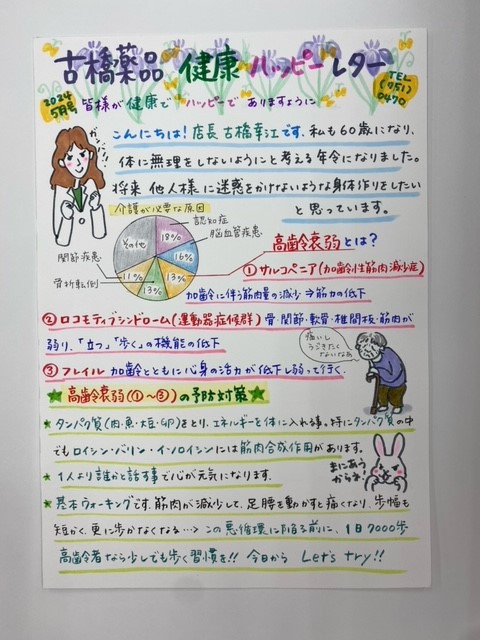 古橋薬品 健康 ハッピーレター
TEL
(751)
0470
2024
5月号
皆様が健康で ハッピーで ありますように
こんにちは! 店長 古橋幸江です。私も60歳になり、
体に無理をしないようにと考える年令になりました。
将来 他人様に迷惑をかけないような身体作りをしたい
と思っています。
介護が必要な原因
認知症
18%
脳血管疾患
16%
13%
13%
11%
その他
関節疾患
骨折転倒
高齢衰弱とは?
① サルコペニア(加齢性筋肉減少症)
加齢に伴う筋肉量の減少⇒筋力の低下
② ロコモティブシンドローム(運動器症候群) 骨・関節・軟骨・椎間板・筋肉が
弱り、「立つ」「歩く」の機能の低下
痛いし
うごきたく
ないなあ
③ フレイル 加齢とともに心身の活力が低下し弱って行く.
★高齢衰弱(①〜③)の予防対策★
★タンパク質(肉・魚・大豆・卵)をとり、エネルギーを体に入れる事。特にタンパク質の中
でもロイシン・バリン・イソロイシンには筋肉合成作用があります。
まにあう
からネ!
★1人より誰かと話す事で心が元気になります。
★基本ウォーキングです。筋肉が減少して、足腰を動かすと痛くなり、歩幅も
短かく、更に歩かなくなる…→この悪循環に陥る前に、1日7000歩
高齢者なら少しでも歩く習慣を!! 今日から Let's try!!